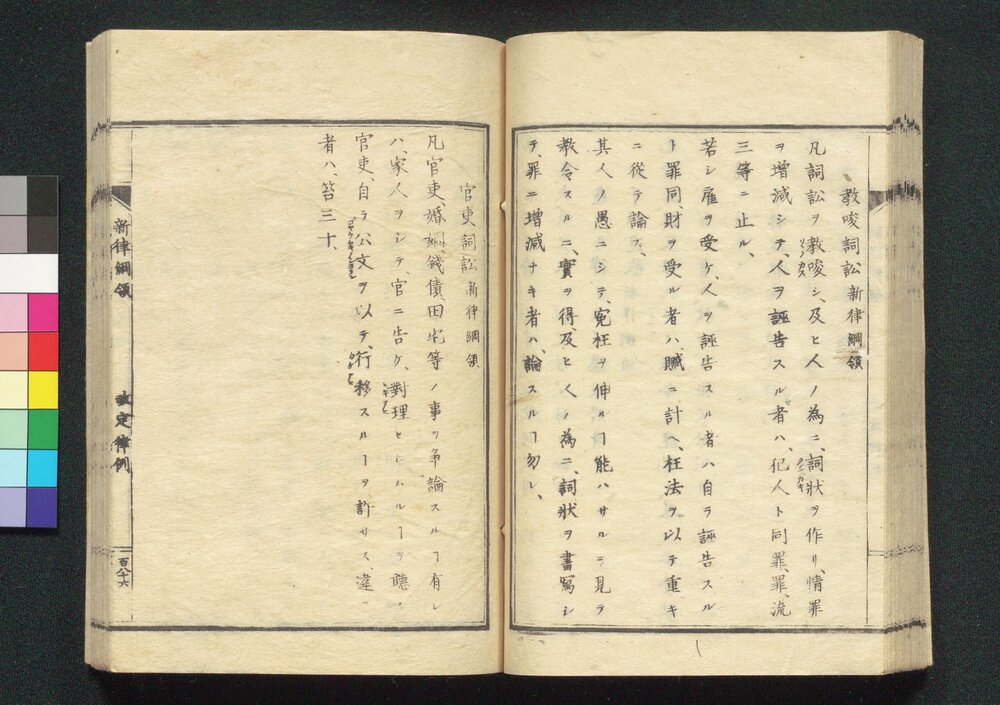 教唆詞訟新律綱領
凡詞訟ヲ教唆シ、及ヒ人ノ為ニ、詞狀ヲ作リ、情罪
ヲ增減シテ、人ヲ誣告スル者ハ、犯人ト同罪、罪、流
三等ニ止ル、
若シ雇ヲ受ケ、人ヲ誣告スル者ハ自ラ誣告スル
ト罪同、財ヲ受ル者ハ、贓ニ計ヘ、枉法ヲ以テ重キ
ニ從テ論ス、
其人ノ愚ニシテ、寃枉ヲ伸ルヿ能ハサルヲ見テ
教令スルニ、實ヲ得、及ヒ人ノ為ニ、詞狀ヲ書寫シ
テ、罪ニ增減ナキ者ハ、論スルヿ勿レ、
官吏詞訟新律綱領
凡官吏、婚姻、錢債、田宅等ノ事ヲ争論スルヿ有レ
ハ、家人ヲシテ、官ニ告ケ、對理セシムルヿヲ聽ス
官吏、自ラ公文ヲ以テ、行移スルヿヲ許サス、違フ
者ハ、笞三十、
新律綱領
改定律例
一百八十六